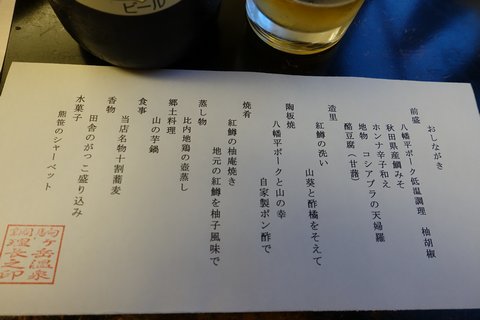 ビール
おしながき
前盛
八幡平ポーク低温調理 柚胡椒
秋田県産鯛みそ
ホンナ辛子和え
地物 コシアブラの天婦羅
酪豆腐（甘蕗）
造里
紅鱒の洗い 山葵と酢橘をそえて
陶板焼
八幡平ポークと山の幸
自家製ポン酢で
焼肴
紅鱒の柚庵焼き
地元の紅鱒を柚子風味で
蒸し物
比内地鶏の壺蒸し
郷土料理
山の芋鍋
食事
当店名物十割蕎麦
香物
田舎のがっこ盛り込み
水菓子
熊笹のシャーベット
駒ヶ岳温泉
調理長之印